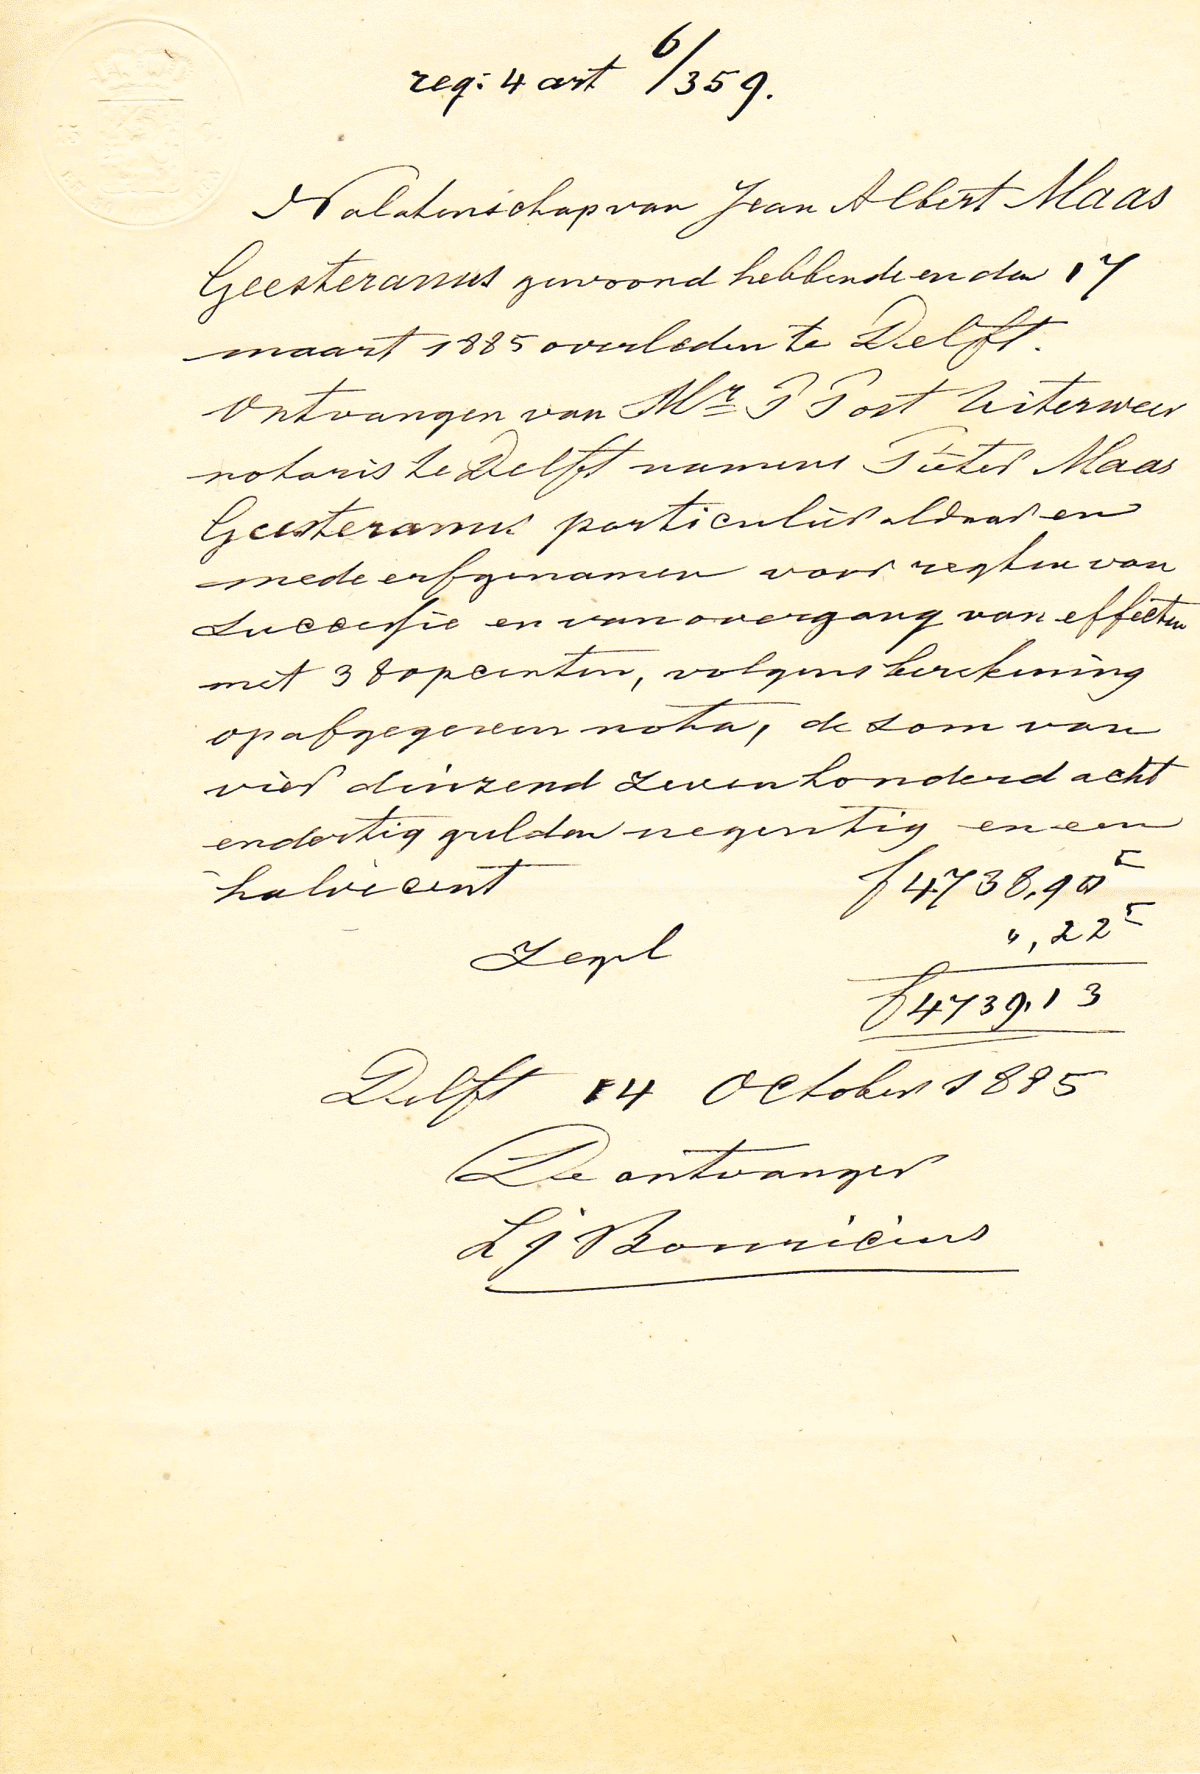 reg: 4 art 6/359.
Nalatenschap van Jean Albert Maas
Geesteranus gewoond hebbende en den 17
maart 1885 overleden te Delft.
Ontvangen van Mr P Post Uiterweer
notaris te Delft namens Pieter Maas
Geesteranus particulier aldaar en
mede erfgenamen voor regten van
successie en van overgang van effecten
met 38 opcenten, volgens berekening
op afgegeven nota, de som van
vier duizend zevenhonderd acht
endertig gulden negentig en een
halve cent f 4738,90⁵
Zegel „ ,22⁵
f 4739,13
Delft 14 October 1885
De ontvanger
L J Bouricius